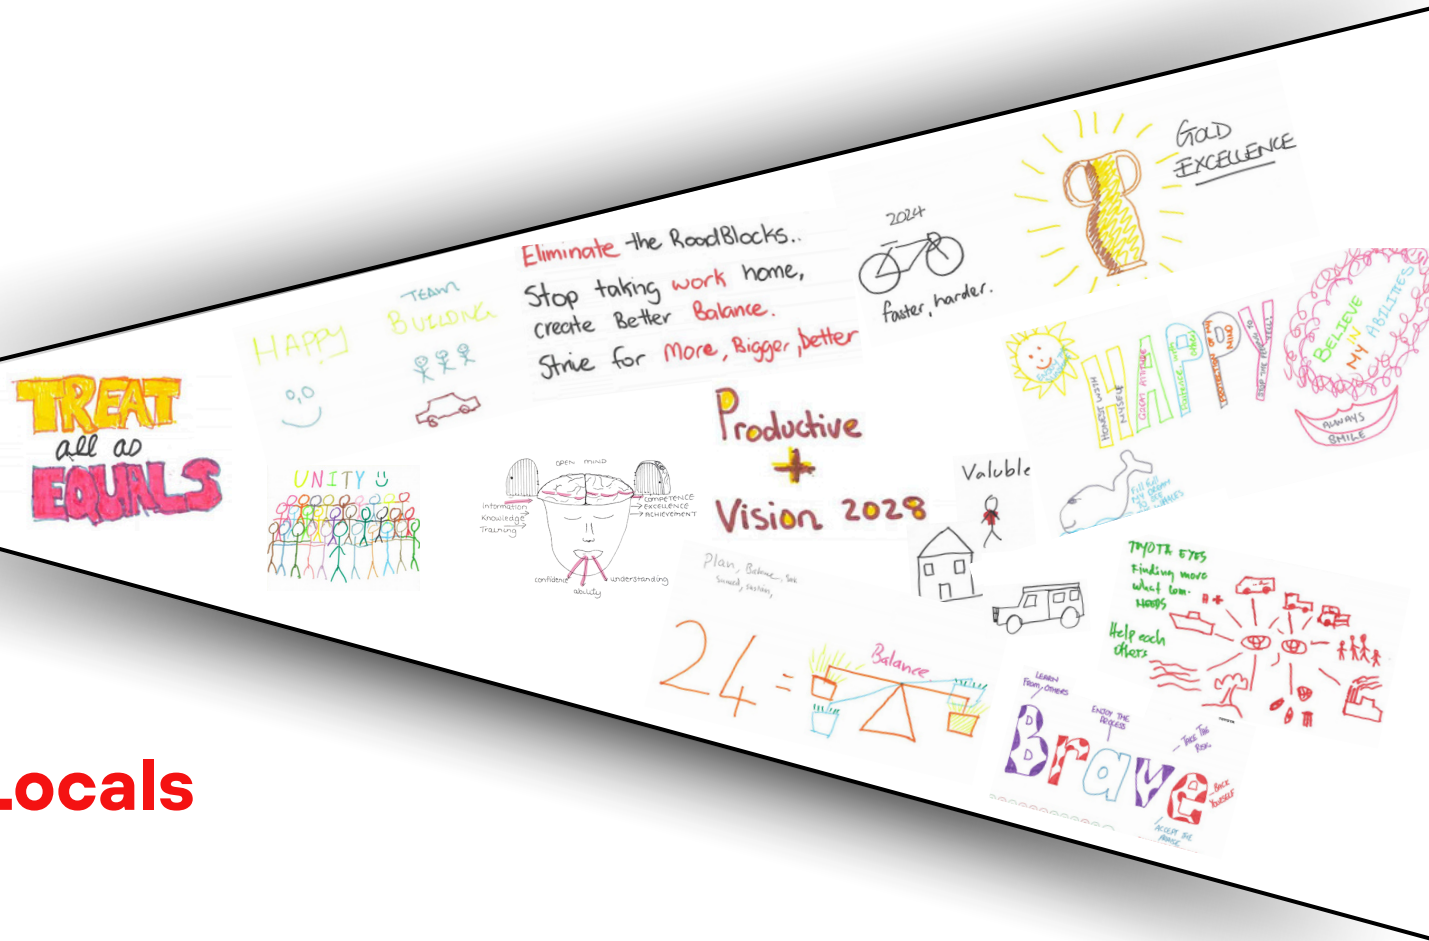 TREAT
all as
EQUALS
HAPPY
TEAM
BUILDING
UNITY
Eliminate the RoadBlocks..
Stop taking work home,
create Better Balance.
Strive for More, Bigger, better
2024
faster, harder.
GOLD
EXCELLENCE
OPEN MIND
Information
Knowledge
Training
COMPETENCE
EXCELLENCE
ACHIEVEMENT
confidence
ability
understanding
Productive
+
Vision 2028
Plan, Balance,
Valuble
24 = Balance
HAPPY
HONEST WITH
MYSELF
GREAT ATTITUDE
BELIEVE
IN
MY ABILITIES
ALWAYS
SMILE
TOYOTA EYES
Finding more
what com-
NEEDS
Help each
others
LEARN
FROM OTHERS
ENJOY THE
PROCESS
TAKE THE
RISK
Brave
BACK
YOURSELF
ACCEPT THE
TOYOTA
Locals